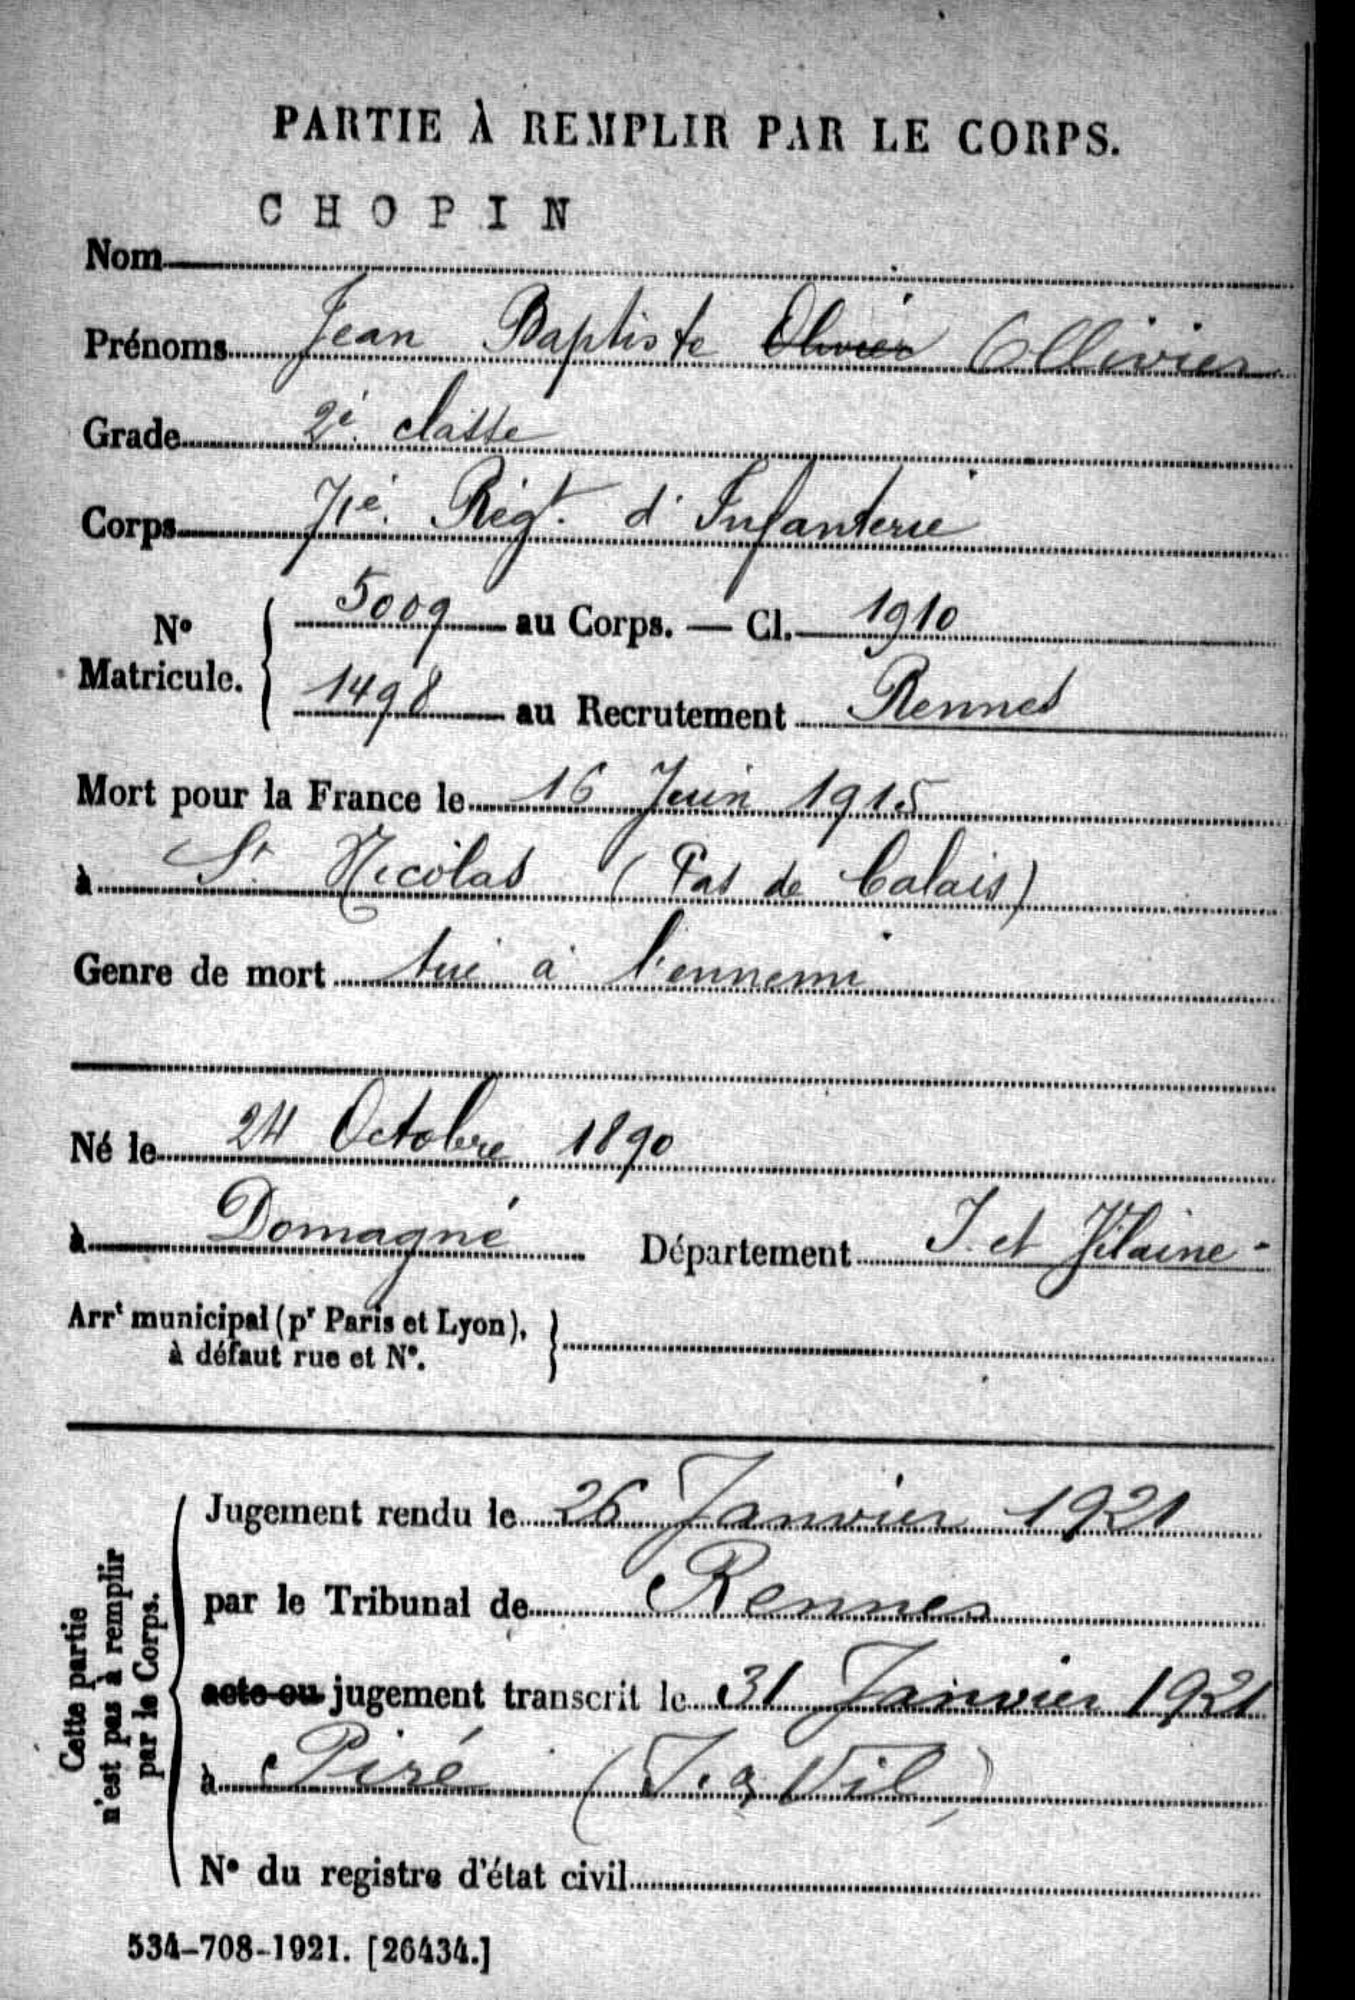 PARTIE À REMPLIR PAR LE CORPS.
CHOPIN
Nom
Prénoms Jean Baptiste Olivier Ollivier
Grade 2è classe
Corps 71è. Régt. d'Infanterie
N°
Matricule.
5009 au Corps. — Cl. 1910
1498 au Recrutement Rennes
Mort pour la France le 16 Juin 1915
à St Nicolas (Pas de Calais)
Genre de mort tué à l'ennemi
Né le 24 Octobre 1890
à Domagné Département I. et Vilaine -
Arrt municipal (pr Paris et Lyon),
à défaut rue et N°.
Cette partie
n'est pas à remplir
par le Corps.
Jugement rendu le 26 Janvier 1921
par le Tribunal de Rennes
acte ou jugement transcrit le 31 Janvier 1921
à Piré (I. & Vil)
N° du registre d'état civil
534-708-1921. [26434.]